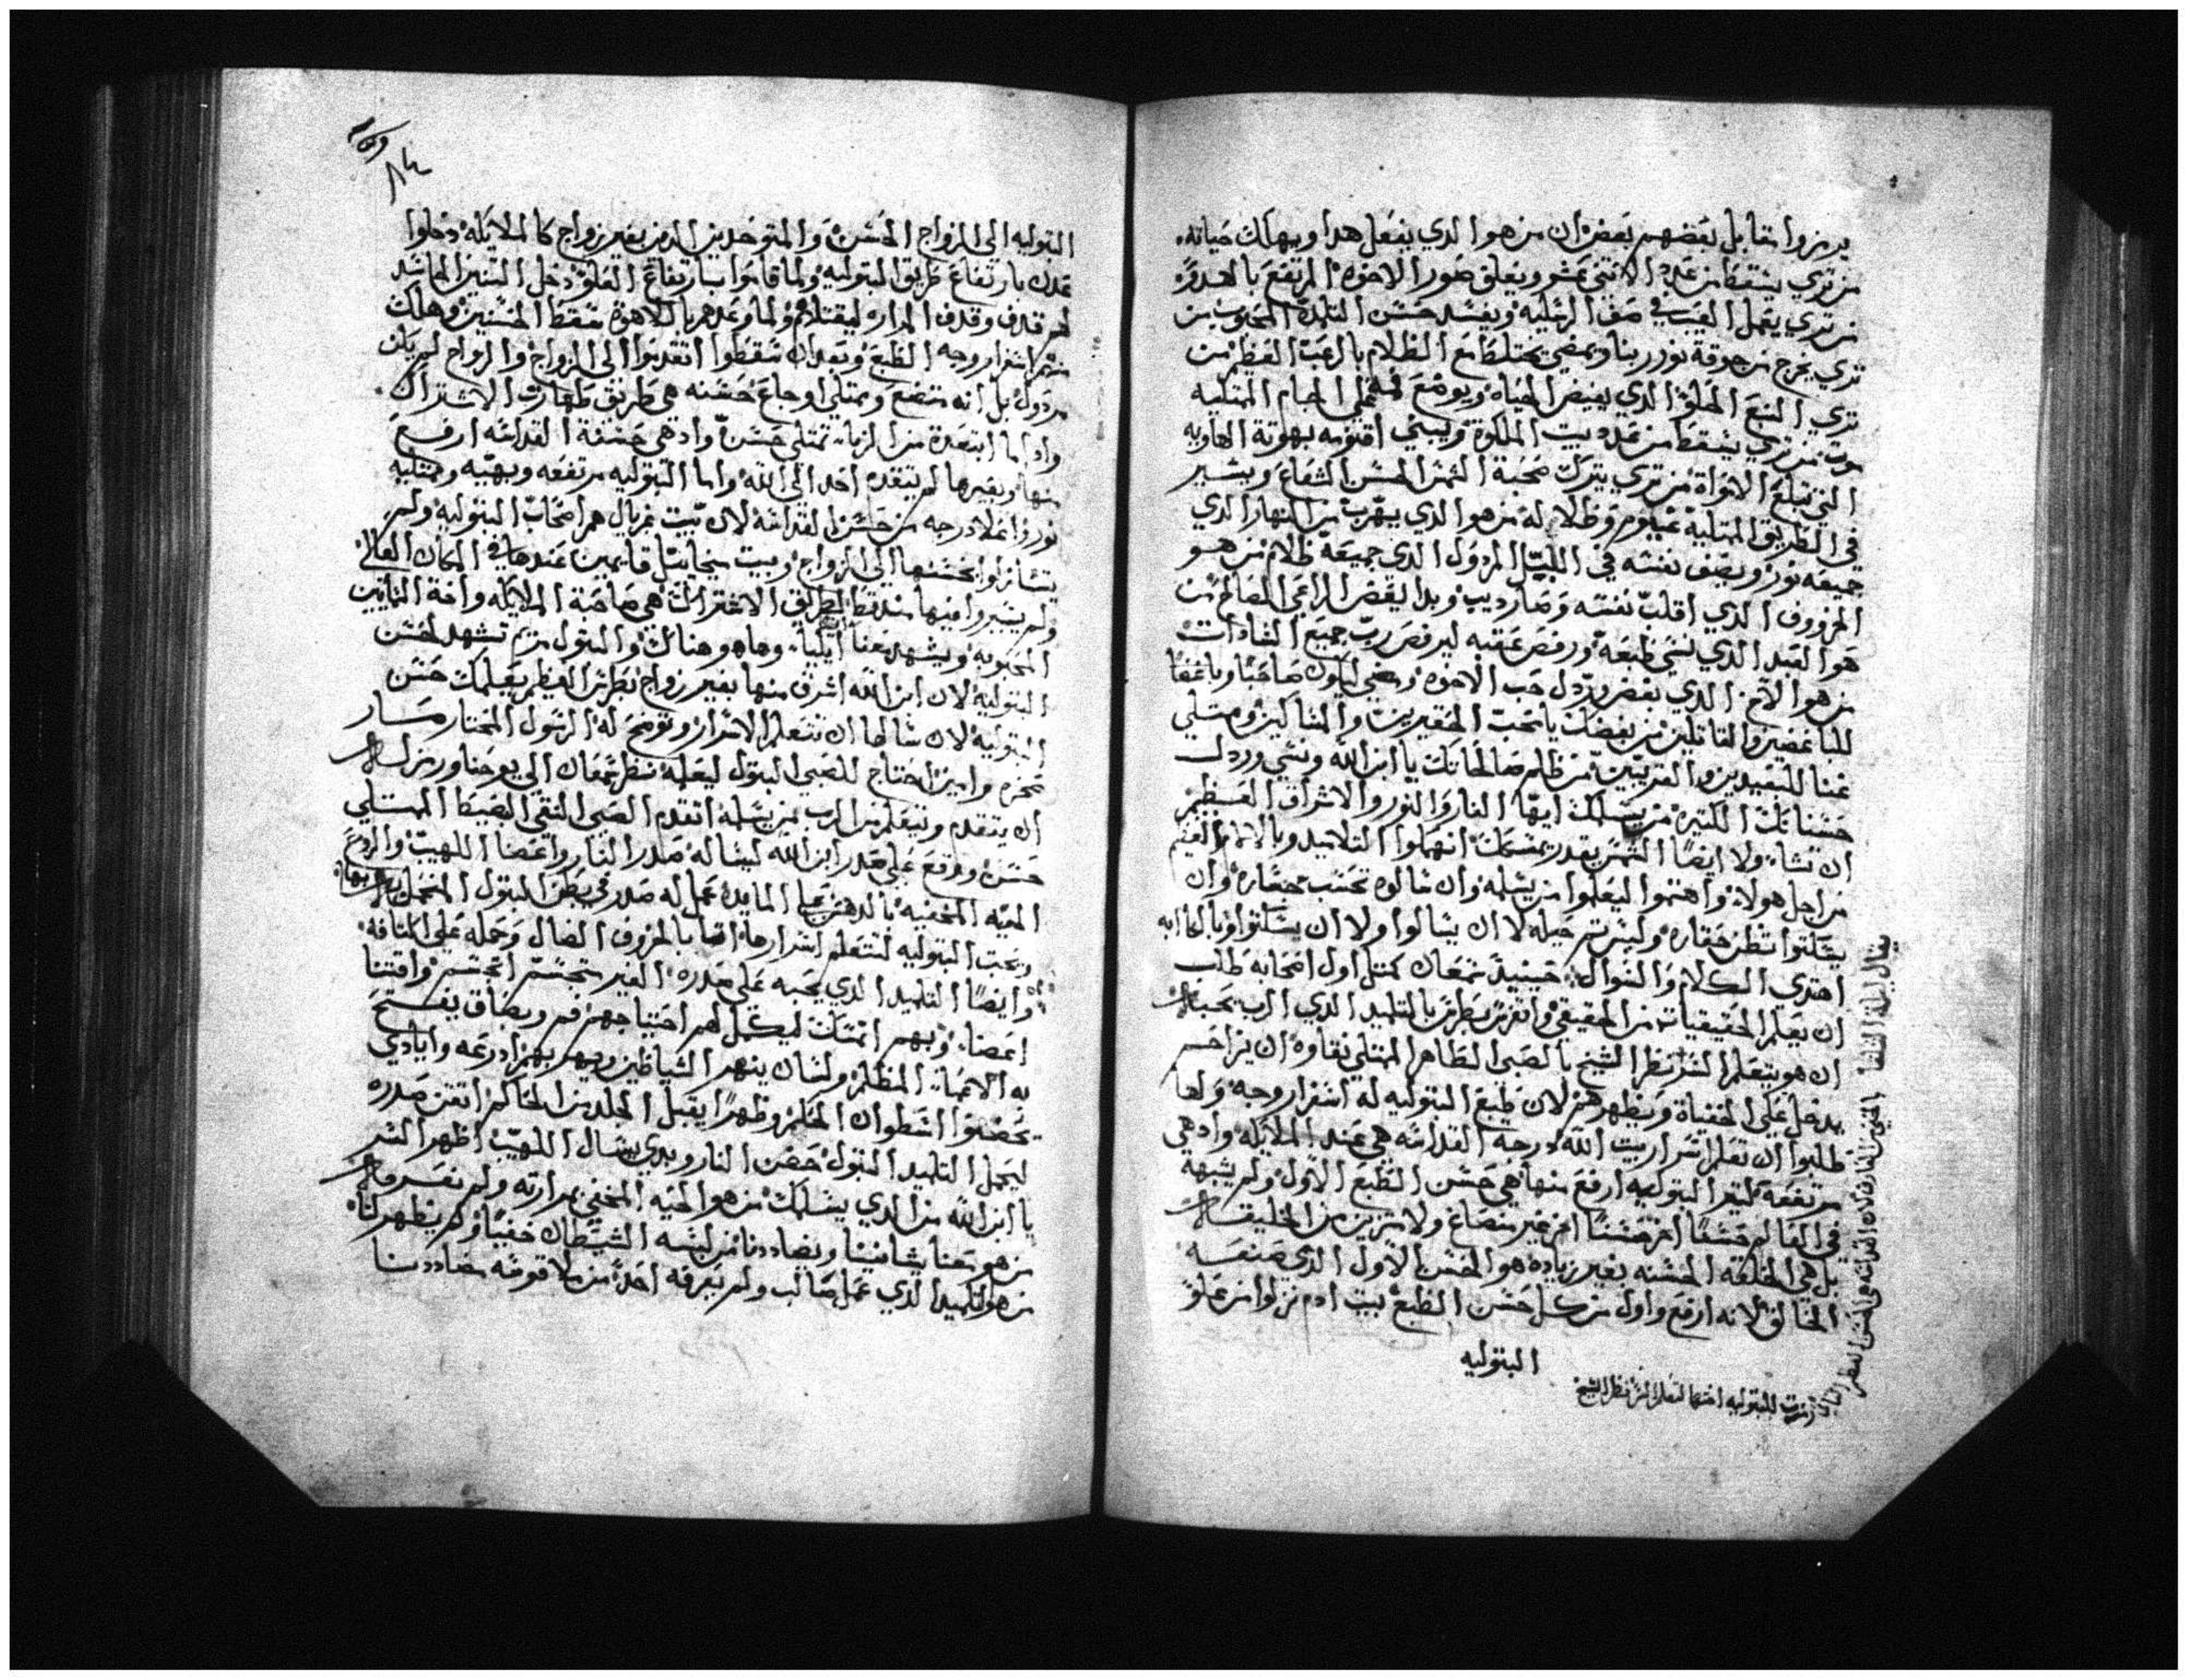 يرمزوا مقابل بعضهم بعض ان من هو الدي يفعل هدا ويهلك حياته
من تري يسقط من عدد الاتني عشر ويغلق صور الاخوه المرتفع بالهدوء
من تري يعمل العيب في صف الرسليه ويفسد حسن التلمدة المحبوب من
تري يخرج من جوقة نور ربنا ويمضي يختلط مع الظلام بالرعب العظيم من
تري النبع الحلو الدي يفيض الحياه ويوضع فمه على الجام الممتليه
موت من تري يسقط من عدد بيت الملكوة ويبني اقنومه بهوتة الهاويه
التي تبلع الاتواة من تري يترك محبة الشمس الحسن الشعاع ويسير
في الطريق الممتليه غيوم وظلاله من هو الدي يهرب من النهار الدي
جميعه نور ويصف نفسه في الليل المردول الدي جميعه ظلام من هو
الخروف الدي اقلب نفسه وصار ديب وبدا يعض الراعي الصالح من
هو العبد الدي نسي طبعه ورفع عقبه ليرفص رب جميع السادات
من هو الاخ الدي بغض وردل حب الاخوه ومضي ليكون صاحبا وباغضا
للباغضين والقاتلين من يغضك يا محب الحقيرين والمساكين وممتلي
غنا للبعيدين والقريبين من ظلم صالحاتك يا ابن الله ونسي وردل
حسناتك الكتيره من يسلمك ايها النار والنور والاشراق العظيم
ان تشاء ولا ايضا الشمس يقدر يمسك انهموا التلاميد وبالالم العظيم
من اجل هولاء واهتموا ليعلموا من يسلمه وان سالوه تحسب جساره وان
يسكتوا تظن حقاره وليس تم حيله لا ان يسالوا ولا ان يسكتوا وبالكابه
اهتدي الكلام والسوال حينيد سمعان كمتل اول اصحابه طلب
ان يعلم الحقيقيات من الحقيقي واتغرس بطرس بالتلميد الدي الرب يحبه
ان هو يتعلم السر نظر الشيخ بالصبي الطاهر الممتلي نقاوه ان يزاحم
يدخل على الخفياة ويظهرهم لان طبع البتوليه له اسفرار وجه ولها
طلبوا ان تعلم اسرار بيت الله درجة القداسه هي عند الملايكه وادهي
مرتفعه كتير البتوليه ارفع منها هي حسن الطبع الاول ولم يشبهه
في العالم حسنا اخر حسنا اخر غير مصاغ ولا متزين من الخليقه
بل هي الخلقة الحسنه بغير زياده هو الحسن الاول الدي صنعه
الخالق لانه ارفع واول من كل حسن الطبع بيت ادم نزلوا من علو
البتوليه
البتوليه الي الزواج الحسن والمتوحدين الدين بغير زواج كالملايكه دخلوا
عدن بارتفاع طريق البتوليه ولما قاموا بارتفاع العلو دخل التنين الحاسد
لهم قدف وقدف المراره ليقتلهم ولما وعدهم بالالاهوة سقط الحسنين وهلك
منهم اسفرار وجه الطبع وبعد ان سقطوا اتقدموا الى الزواج والزواج لم يكن
مردول بل انه متضع وممتلي اوجاع حسنه هي طريق طهارت الاشتراك
واد اما ابتعدة من الزنا تمتلي حسن وادهي حسنة القداسه ارفع
منها وبغيرها لم يتقدم احد الى الله واما البتوليه مرتفعه وبهيه وممتليه
نور واعلا درجه من حسن القداسه لان بيت غبريال هم اصحاب البتوليه ولم
يتنازلوا بحسنها الى الزواج وبيت ميخاييل قايمين عندها في المكان العالي
ولم يتغيروا منها سقط لطريق الاشتراك هي صاحبة الملايكه واخة الناتيين
المحبوبه ويشهد معنا ايلياء وها هو هناك والبتول مريم تشهد لحسن
البتوليه لان ابن الله اشرق منها بغير زواج بطرس العظيم يعلمك حسن
البتوليه لان سالها ان تتعلم الاسرار وتوضح له الرسول المختار صار
صخره وامين احتاج للصبي البتول ليعلمه نظر سمعان الي يوحنا ورمز له
ان يتقدم ويتعلم من الرب من يسلمه اتقدم الصبي النقي البسيط الممتلي
حسن ووقع على صدر ابن الله ليساله صدر النار واعضا اللهيب والروع
الحيه المخفيه بالدهش على المايده عمل له صدر في بطن البتول
ويحب البتوليه لتتعلم اسرارها اتها بالخروف الضال وحمله على اكتافه
وايضا التلميد الدي يحبه على صدره الغير متجسم اتجسم واقتنا
اعضاء وبهم اتمتلك ليكمل لهم احتياجهم فم وبصاق يفتح
به الاعماء المظلم ولسان ينهر الشياطين ويهربهم ادرعه وايادي
يحضنوا اسطوان الحكم وظهرا يقبل الجلد من الحاكم اتقن صدره
ليحمل التلميد البتول حضن النار وبدي يسال اللهيب اظهر السر
يا ابن الله من الدي يسلمك من هو الحيه المخفي بمرارته ولم نفسر
من هو معنا يشاننا ويضاددنا من لبسه الشيطان خفيا ولم يظهر لنا
من هو التلميد الدي عمل صالب ولم يعرفه احد من ملاقوفه مضاددنا